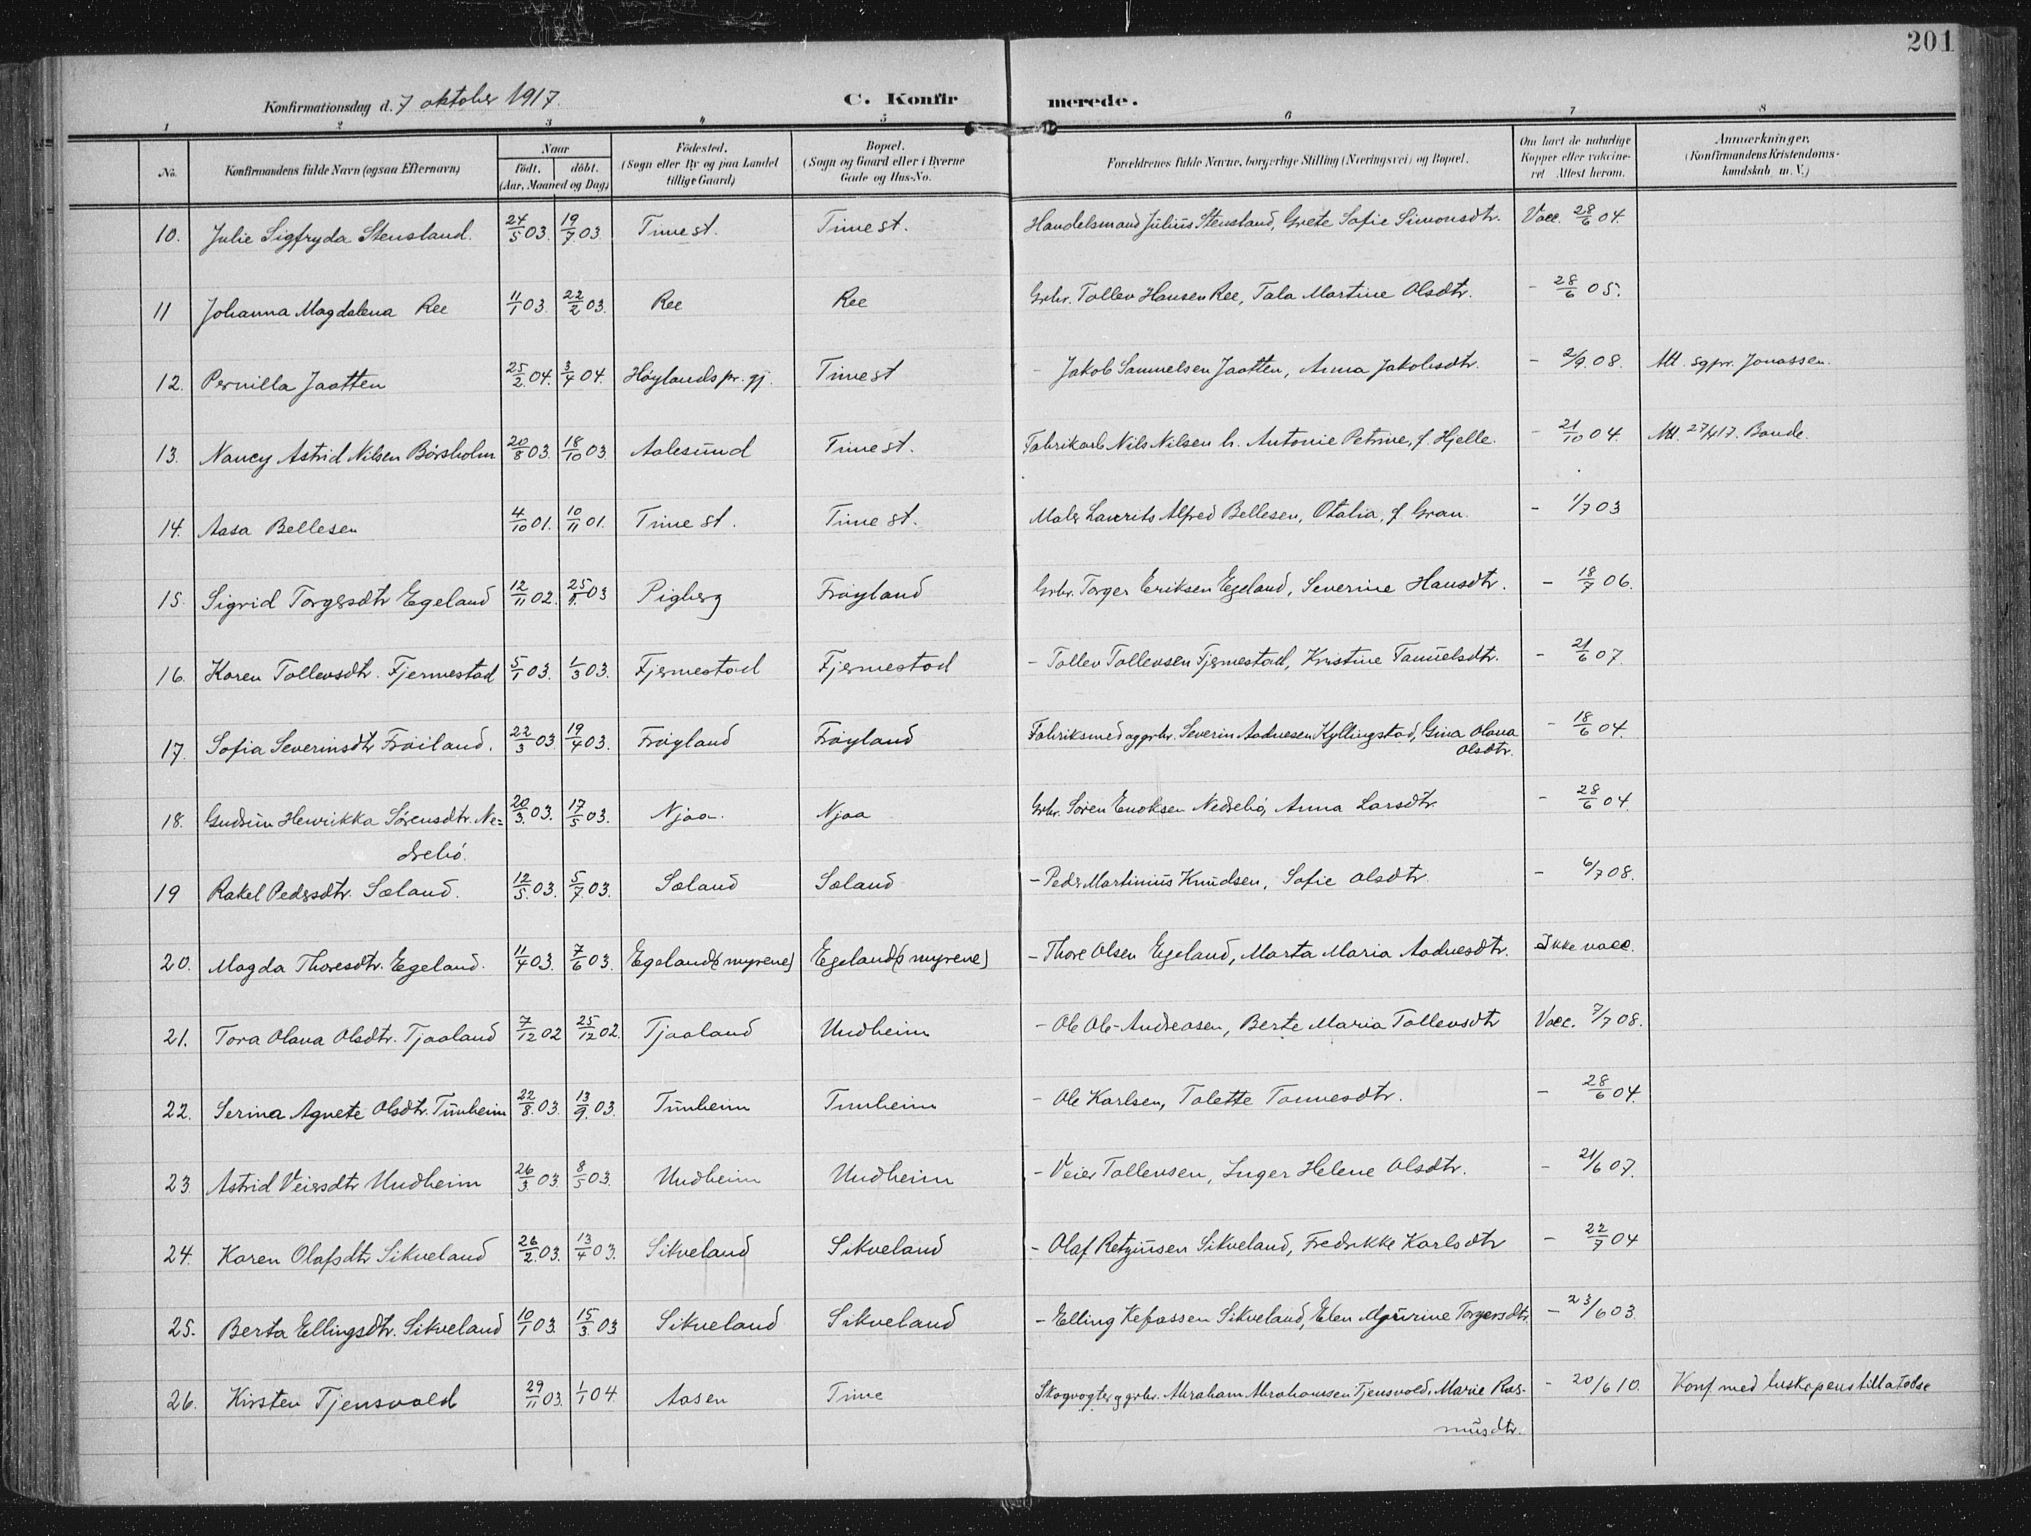 201
Konfirmationsdag d. 7 oktober 1917. C. Konfirmerede.
1 2 3 4 5 6 7 8
No. Konfirmandens fulde Navn (ogsaa Efternavn) Naar födt. döbt. (Aar, Maaned og Dag) Födested. (Sogn eller By og paa Landet tillige Gaard) Bopæl. (Sogn og Gaard eller i Byerne Gade og Hus-No. Forældrenes fulde Navne, borgerlige Stilling (Næringsvei) og Bopæl. Om havt de naturlige Kopper eller vaccineret Attest herom. Anmærkninger. (Konfirmandens Kristendomskundskab m. V.)
10. Julie Sigfryda Stensland. 24/5 03. 19/7 03. Time st. Time st. Handelsmand Julius Stensland, Grete Sofie Simonsdtr. Vacc. 28/6 04.
11 Johanna Magdalena Ree 11/1 03. 22/2 03. Ree Ree Grbr. Tollev Hansen Ree, Tala Martine Olsdtr. - 28/6 05.
12. Pernilla Jaatten 25/2 04. 3/4 04. Høylands pr. gj. Time st - Jakob Samuelsen Jaatten, Anna Jakobsdtr. - 2/9 08. Att. sgpr. Jonassen.
13. Nancy Astrid Nilsen Børsholm 20/8 03. 18/10 03 Aalesund Time st. Fabrikarb. Nils Nilsen h. Antonie Petrine, f. Hjelle. - 21/10 04. Att. 27/4 17. Bonde.
14. Aasa Bellesen 4/10 01. 10/11 01. Time st. Time st. Maler Laurits Alfred Bellesen, Otalia, f. Gran. - 1/7 03
15. Sigrid Torgersdtr Egeland 12/11 02. 25/1 03 Pigberg Frøyland Grbr. Torger Eriksen Egeland, Severine Hansdtr. - 18/7 06.
16. Karen Tollevsdtr. Fjermestad 5/1 03. 1/3 03. Fjermestad Fjermestad - Tollev Tollevsen Fjermestad, Kristine Tanuelsdtr. - 21/6 07.
17. Sofia Severinsdtr Frøiland. 22/3 03 19/4 03. Frøyland Frøyland Fabriksmed og grbr. Severin Aadnesen Kyllingstad, Gina Olava - 18/6 04.
Olsdtr.
18. Gudrun Henrikka Sørensdtr. Ne= 20/3 03. 17/5 03. Njaa. Njaa Grbr. Søren Enoksen Nedrebø, Anna Larsdtr. - 28/6 04.
drebø.
19 Rakel Pedersdtr. Sæland. 12/5 03. 5/7 03. Sæland Sæland - Peder Martinius Knudsen, Sofie Olsdtr. - 6/7 08.
20. Magda Thoresdtr. Egeland. 11/4 03. 7/6 03. Egeland(smyrene) Egeland(smyrene) - Thore Olsen Egeland, Marta Maria Aadnesdtr. Ikke vacc.
21. Tora Olava Olsdtr. Tjaaland 7/12 02 25/12 02. Tjaaland Undheim - Ole Ole-Andreasen, Berte Maria Tollevsdtr Vacc. 7/7 08.
22. Serina Agnete Olsdtr. Tunheim 22/8 03. 13/9 03. Tunheim Tunheim - Ole Karlsen, Talette Tønnesdtr. - 28/6 04.
23. Astrid Veiersdtr Undheim 26/3 03. 8/5 03. Undheim Undheim - Veier Tollevsen, Inger Helene Olsdtr. - 21/6 07.
24. Karen Olafsdtr Sikveland 26/2 03. 13/4 03. Sikveland Sikveland - Olaf Retziusen Sikveland, Fredrikke Karlsdtr - 22/7 04
25. Berta Ellingsdtr. Sikveland 10/1 03. 15/3 03 Sikveland Sikveland - Elling Kefassen Sikveland, Elen Torgersdtr. - 23/6 03.
26. Kirsten Tjensvold 29/11 03. 1/1 04. Aasen Time Skogvogter og grbr. Abraham Abrahamsen Tjensvold, Marie Ras- - 20/6 10. Konf med biskopens tilladelse
musdtr.